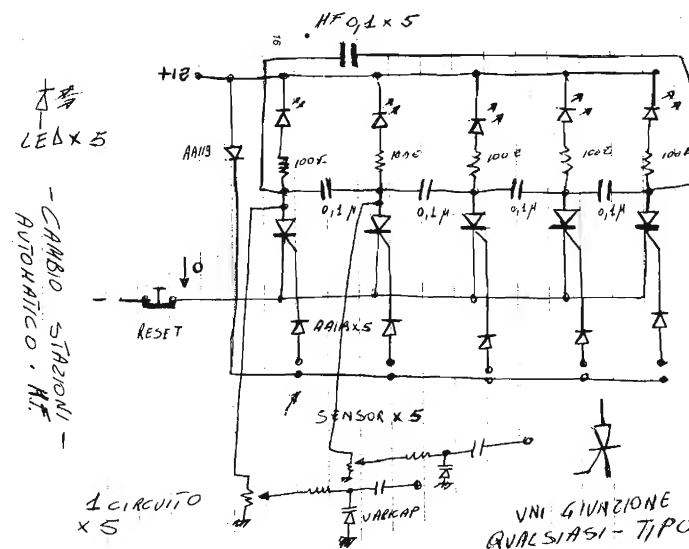 16
MF 0,1 x 5
+12
LED x 5
AA119
100Ω
100Ω
100Ω
100Ω
100Ω
0,1 µ
0,1 µ
0,1 µ
0,1 µ
- CAMBIO STAZIONI -
AUTOMATICO . M.F
-
0
RESET
AA119 x 5
SENSOR x 5
1 CIRCUITO
x 5
VARICAP
UNI GIUNZIONE
QUALSIASI - TIPO